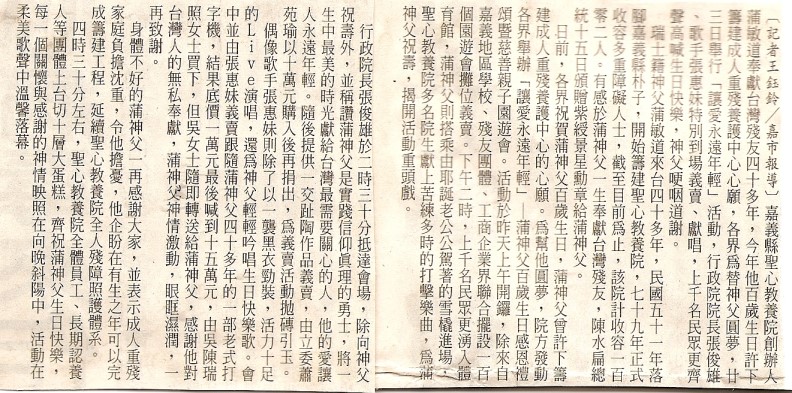 〔記者王鈺鈴／嘉市報導〕嘉義縣聖心教養院創辦人
蒲敏道奉獻台灣殘友四十多年，今年他百歲生日許下
籌建成人重殘養護中心心願，各界為替神父圓夢，廿
三日舉行「讓愛永遠年輕」活動，行政院院長張俊雄
、歌手張惠妹特別到場義賣、獻唱，上千名民眾更齊
聲高喊生日快樂，神父哽咽道謝。
瑞士籍神父蒲敏道來台四十多年，民國五十一年落
腳嘉義縣朴子，開始籌建聖心教養院，七十九年正式
收容多重障礙人士，截至目前為止，該院計收容一百
零二人。有感於蒲神父一生奉獻台灣殘友，陳水扁總
統十五日頒贈紫綬景星勳章給蒲神父。
日前，各界祝賀蒲神父百歲生日，蒲神父曾許下籌
建成人重殘養護中心的心願。為幫他圓夢，院方發動
各界舉辦「讓愛永遠年輕」－蒲神父百歲生日感恩禮
頌暨慈善親子園遊會。活動於昨天上午開鑼，除來自
嘉義地區學校、殘友團體、工商企業界聯合擺設一百
個園遊會攤位義賣。下午二時，上千名民眾更湧入體
育館，蒲神父則搭乘由耶誕老公公駕著的雪橇進場，
聖心教養院多名院生獻上苦練多時的打擊樂曲，為蒲
神父祝壽，揭開活動重頭戲。
行政院長張俊雄於二時三十分抵達會場，除向神父
祝壽外，並稱讚蒲神父是實踐信仰真理的勇士，將一
生中最美的時光獻給台灣最需要關心的人，他的愛讓
人永遠年輕。隨後提供一交趾陶作品義賣，由立委蕭
苑瑜以十萬元購入後再捐出，為義賣活動拋磚引玉。
偶像歌手張惠妹則除了以一襲黑衣勁裝，活力十足
的Live演唱，還為神父輕輕吟唱生日快樂歌。會
中並由張惠妹義賣跟隨蒲神父四十多年的一部老式打
字機，結果底價一萬元最後喊到十五萬元，由吳陳瑞
照女士買下，但吳女士隨即轉送給蒲神父，感謝他對
台灣人的無私奉獻，蒲神父神情激動，眼眶濕潤，一
再致謝。
身體不好的蒲神父一再感謝大家，並表示成人重殘
家庭負擔沈重，令他擔憂，他企盼在有生之年可以完
成籌建工程，延續聖心教養院全人殘障照護體系。
四時三十分左右，聖心教養院全體員工、長期認養
人等團體上台切十層大蛋糕，齊祝蒲神父生日快樂，
每一個關懷與感謝的神情映照在向晚斜陽中，活動在
柔美歌聲中溫馨落幕。